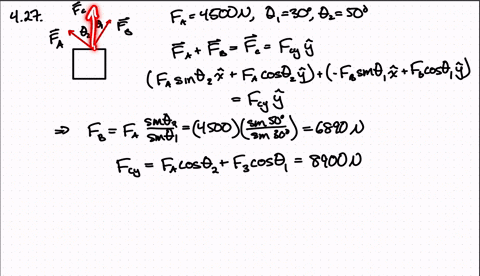 4.27.
F_c
F_A θ_2 θ_1 F_B
F_A = 4500N, θ_1 = 30°, θ_2 = 50°
F_A + F_B = F_c = F_cy ŷ
(F_A sinθ_2 x̂ + F_A cosθ_2 ŷ) + (-F_B sinθ_1 x̂ + F_B cosθ_1 ŷ)
= F_cy ŷ
⇒ F_B = F_A sinθ_2/sinθ_1 = (4500)(sin 50°/sin 30°) = 6890 N
F_cy = F_A cosθ_2 + F_B cosθ_1 = 8900 N